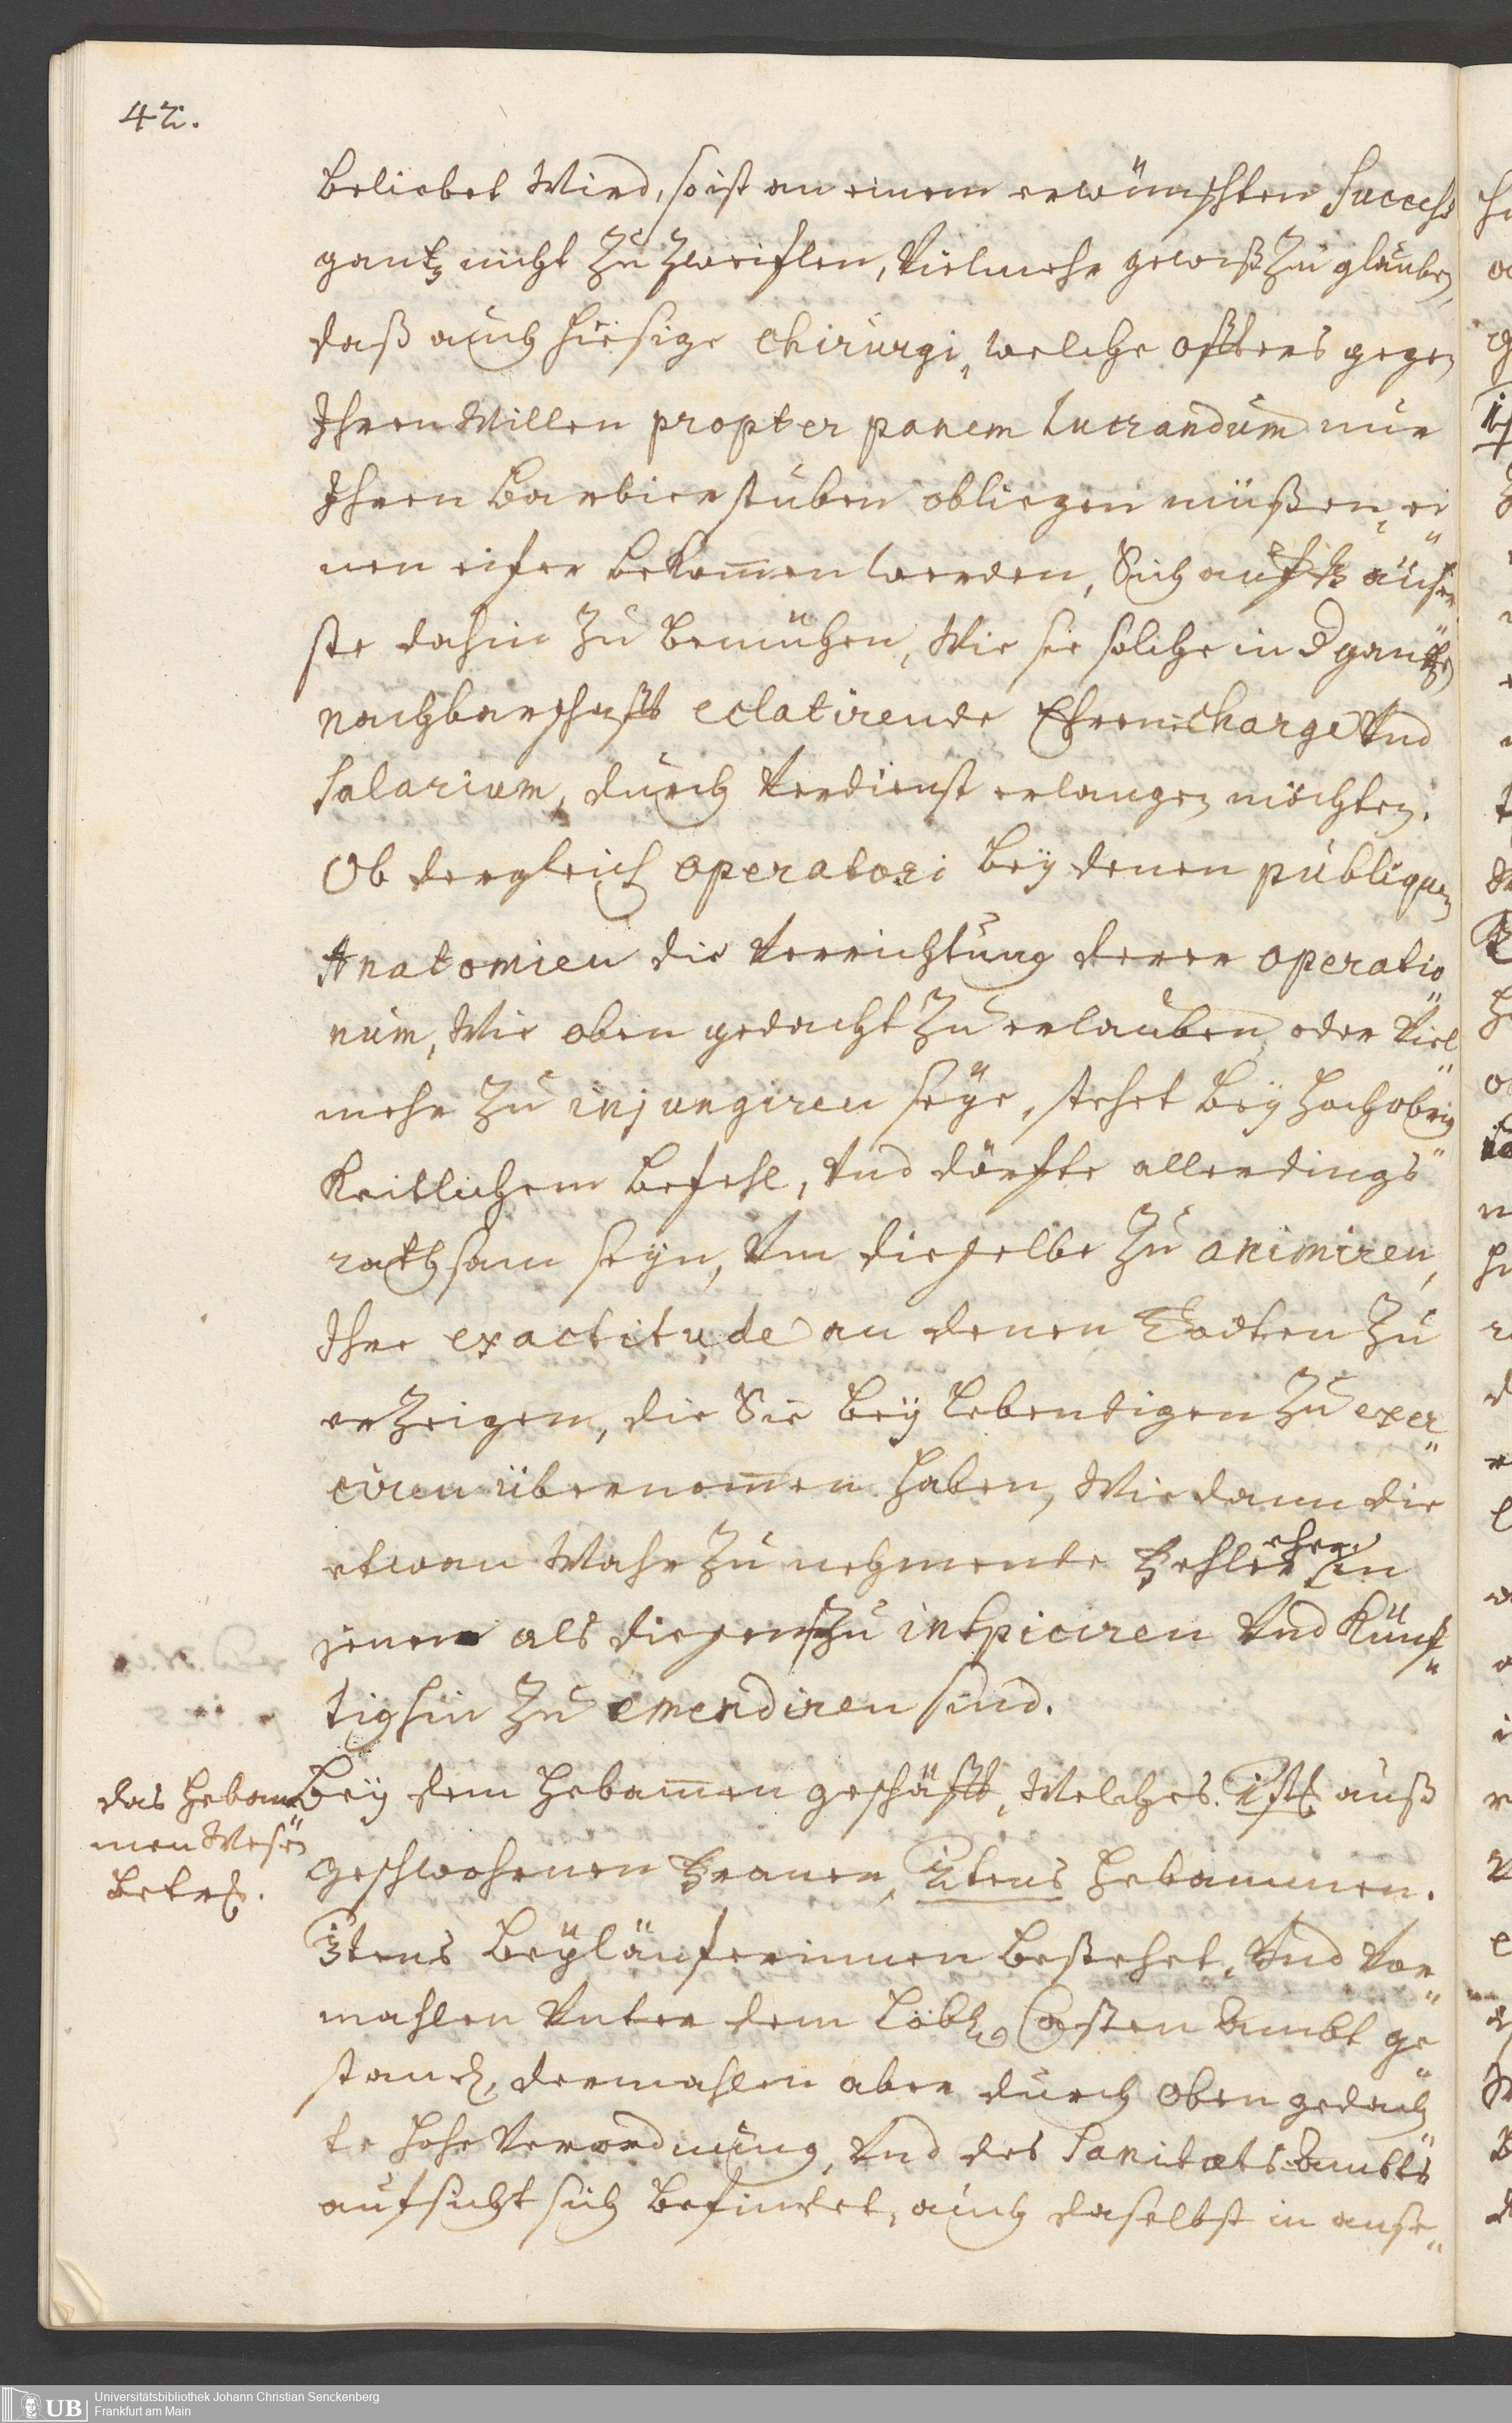 42.
beliebet Wird, so ist an einem erwünschten Success
gantz nicht Zu Zweiflen, Vielmehr gewiß Zu glauben,
daß auch hiesige Chirurgi, welche offters gegen
Ihren Willen propter panem lucrandum nur
Ihren Barbierstuben obliegen müßen, ei„
nen eifer bekom̅en werden, Sich aufs äußer„
ste dahin Zu bemühen, Wie sie solche in d gantzen
nachbarschafft eclatirende Ehren charge Und
Salarium, durch Verdienst erlangen möchten.
Ob dergleich operatori beÿ denen publiquen
Anatomien die Verrichtung derer operatio„
num, Wie oben gedacht Zu erlauben, oder Viel„
mehr Zu injungiren seÿe, stehet beÿ Hochobrig„
Keitlichem befehl, Und dörfte allerdings
rathsam seÿn, Um dieselbe Zu animiren,
Ihre exactitude an denen Todten Zu
erZeigen, die Sie beÿ lebendigen Zu exer„
ciren übernom̅en haben, Wie dann die
etwan Wahr Zu nehmende Fehler eher in
jenen als diesen Zu inspiciren Und Künf„
tighin Zu emendiren sind.
das Hebam„
men Wesen
betrf.
Beÿ dem Hebam̅en geschäfft, Welches 1stl. auß
geschwohrenen Frauen, 2tens Hebammen.
3tens Beÿläuferinnen bestehet, Und Vor„
mahlen Unter dem Löbl. Casten Ambt ge„
stand, dermahlen aber durch oben gedach„
te hohe Verordnung, Und des Sanitæts Ambts
aufsicht sich befindet, auch daselbst in anse„
Universitätsbibliothek Johann Christian Senckenberg
Frankfurt am Main
UB